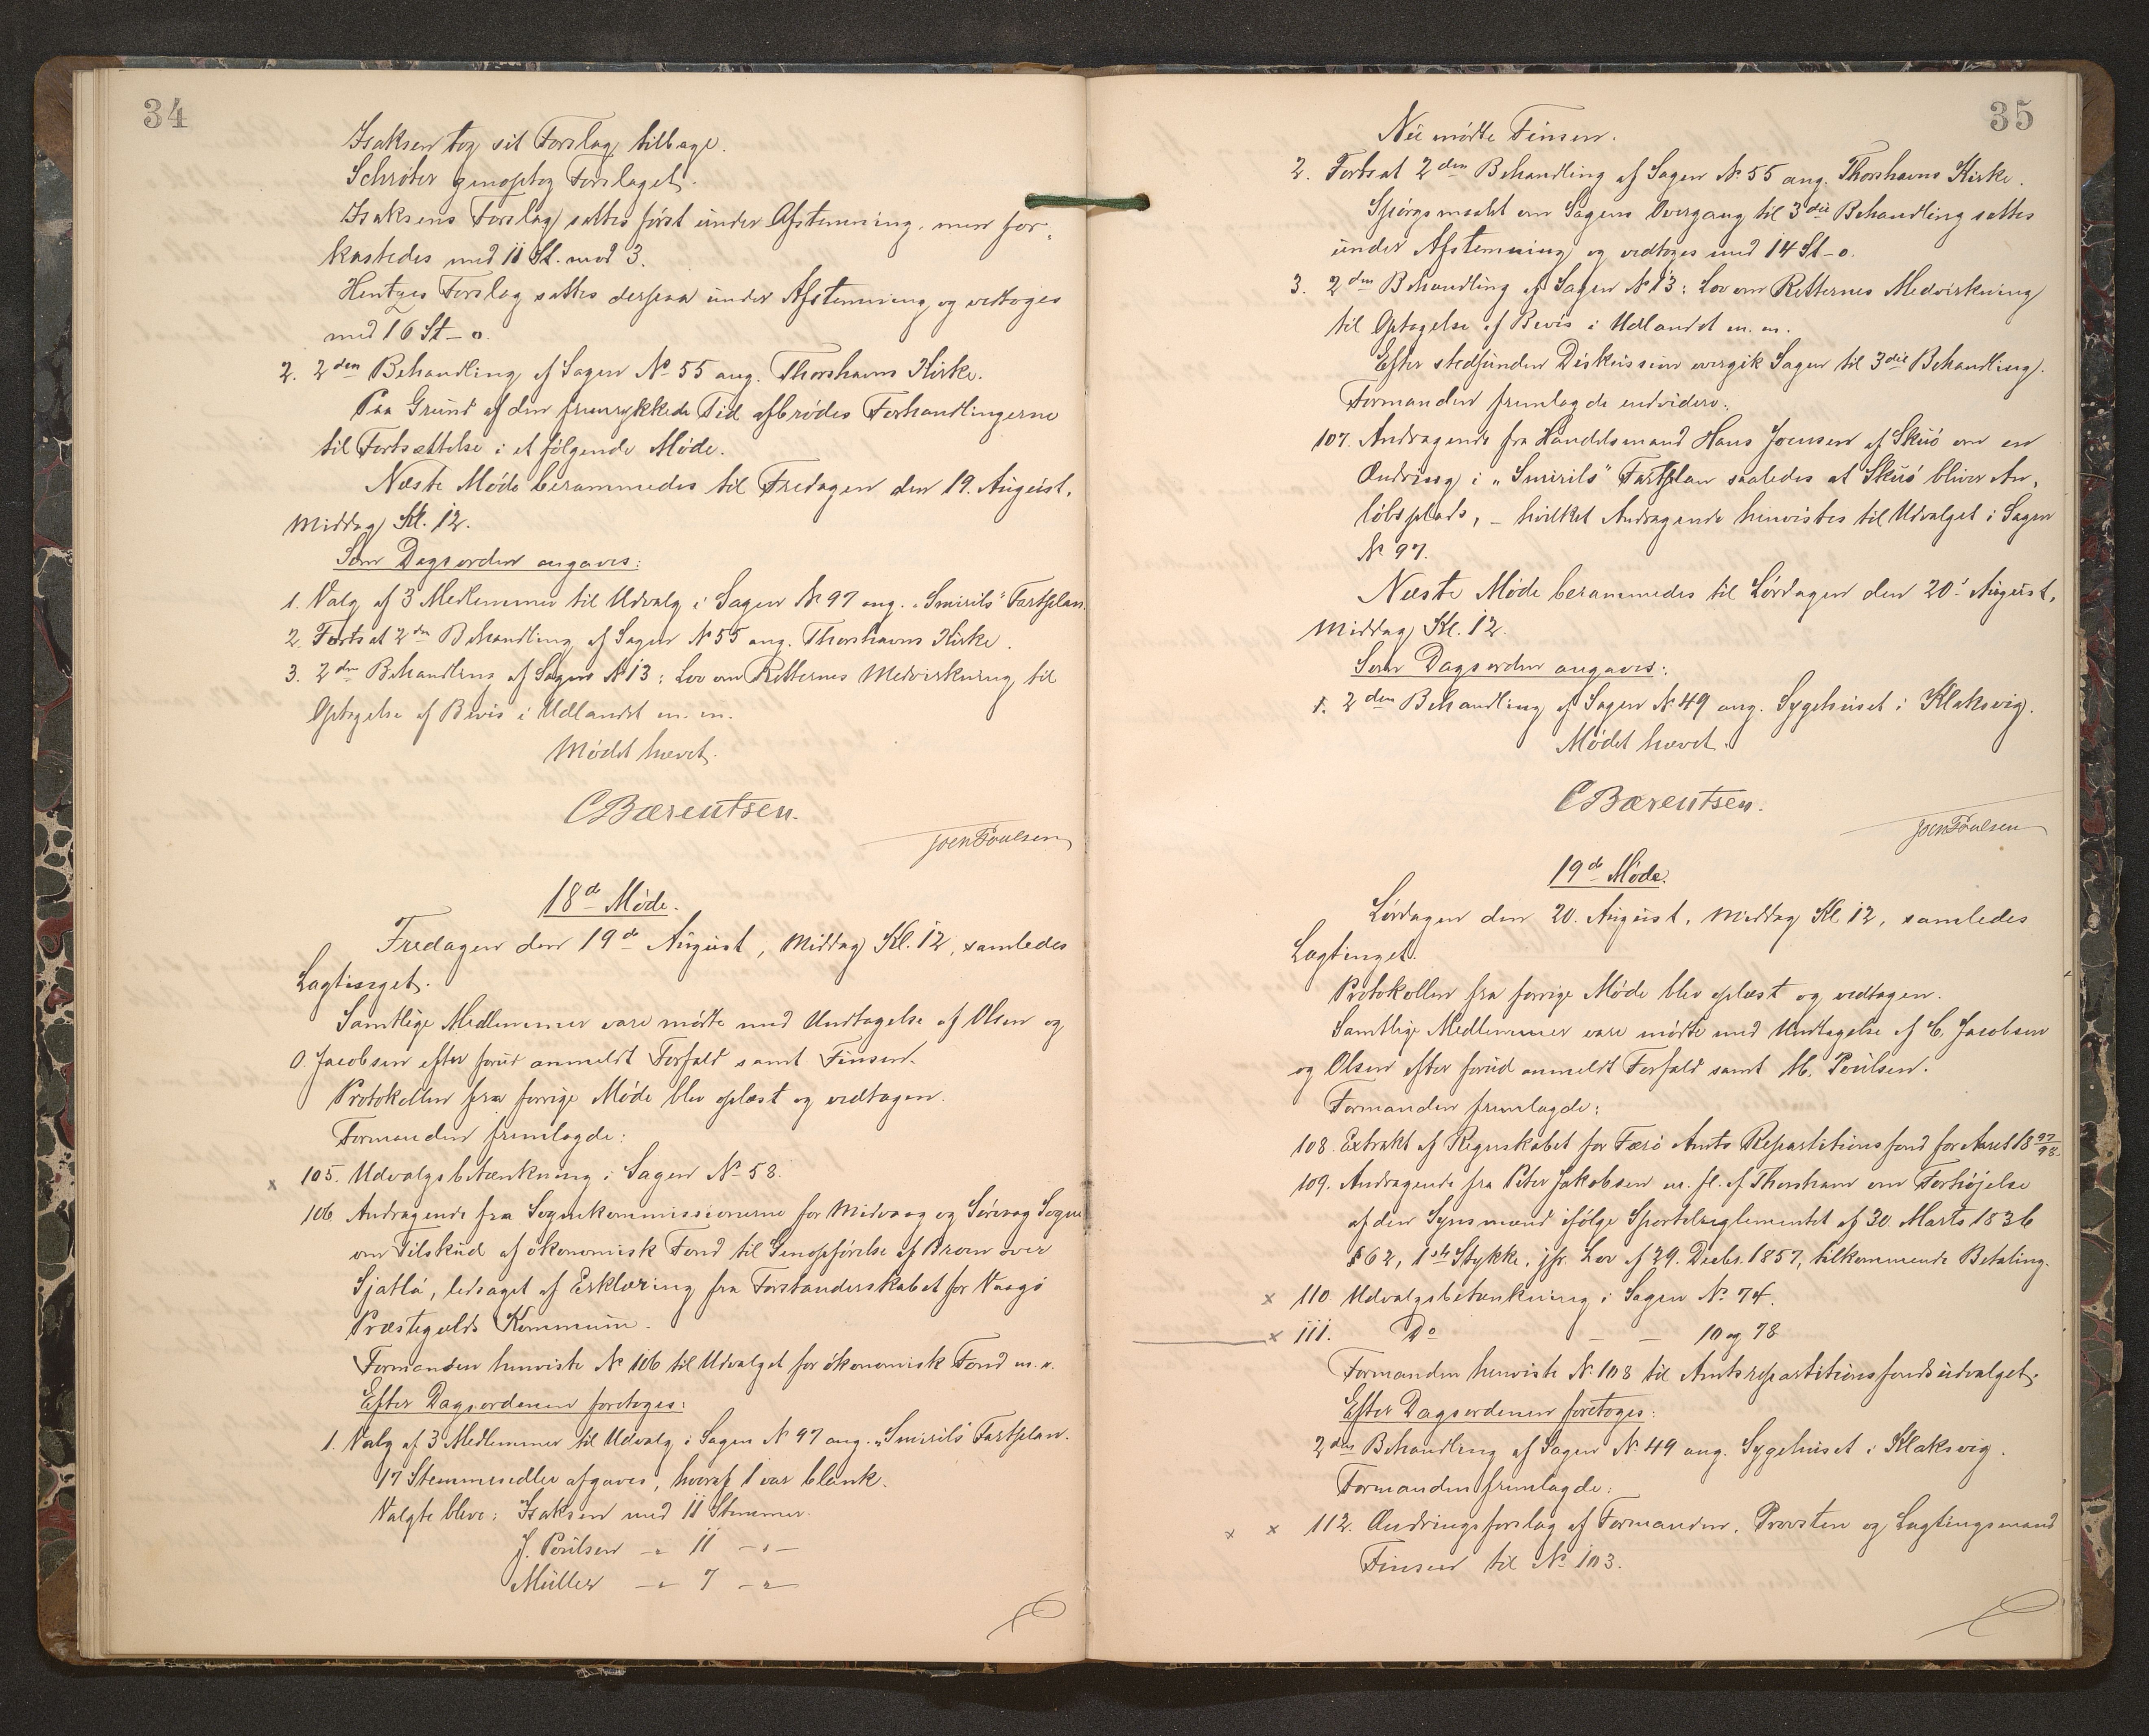 34
Isaksen tog sit Forslag tilbage.
Schröter genoptog Forslaget.
Isaksens Forslag sattes først under Afstemning, men for-
kastedes med 11 St. mod 3.
Hentzes Forslag sattes derpaa under Afstemning og vedtoges
med 16 St - o.
2. 2den Behandling af Sagen No 55 ang. Thorshavns Kirke.
Paa Grund af den fremrykkede Tid afbrødes Forhandlingerne
til Fortsættelse i et følgende Møde.
Næste Møde berammedes til Fredagen den 19. August,
Middag Kl. 12.
Som Dagsorden angaves:
1. Valg af 3 Medlemmer til Udvalg i Sagen No 97 ang. „Smirils" Fartplan.
2. Fortsat 2den Behandling af Sagen No 55 ang. Thorshavns Kirke.
3. 2den Behandling af Sagen No 13: Lov om Retternes Medvirkning til
Optagelse af Bevis i Udlandet m. m.
Mødet hævet.
CBærentsen.
Joen Poulsen
18de Møde.
Fredagen den 19de August, Middag Kl. 12, samledes
Lagtinget.
Samtlige Medlemmer vare mødte med Undtagelse af Olsen og
O. Jacobsen efter forud anmeldt Forfald samt Finsen.
Protokollen fra forrige Møde blev oplæst og vedtagen.
Formanden fremlagde:
x 105. Udvalgsbetænkning i Sagen No 58.
106 Andragende fra Sognekommissionerne for Midvaag og Sørvaag Sogne
om Tilskud af økonomisk Fond til Genopførelse af Broen over
Sjatlá, ledsaget af Erklæring fra Forstanderskabet for Vaagø
Præstegælds Kommune.
Formanden henviste No 106 til Udvalget for økonomisk Fond m. v.
Efter Dagsordenen foretoges:
1. Valg af 3 Medlemmer til Udvalg i Sagen No 97 ang. „Smirils" Fartplan.
17 Stemmesedler afgaves, hvoraf 1 var blank.
Valgte bleve: Isaksen med 11 Stemmer.
J. Poulsen - „ 11 - „ -
Müller - „ 7 - „ -
35
Nu mødte Finsen.
2. Fortsat 2den Behandling af Sagen No 55 ang. Thorshavns Kirke.
Spørgsmaalet om Sagens Overgang til 3die Behandling sattes
under Afstemning og vedtoges med 14 St - o.
3. 2den Behandling af Sagen No 13: Lov om Retternes Medvirkning
til Optagelse af Bevis i Udlandet m. m.
Efter stedfunden Diskussion overgik Sagen til 3die Behandling.
Formanden fremlagde endvidere:
107. Andragende fra Handelsmand Hans Joensen af Skuö om en
Ændring i „Smirils" Fartplan saaledes at Skuö bliver An-
løbsplads, - hvilket Andragende henvistes til Udvalget i Sagen
No 97.
Næste Møde berammedes til Lørdagen den 20. August,
Middag Kl. 12.
Som Dagsorden angaves:
1. 2den Behandling af Sagen No 49 ang. Sygehuset i Klaksvig.
Mødet hævet.
CBærentsen.
Joen Poulsen
19de Møde.
Lørdagen den 20. August, Middag Kl 12, samledes
Lagtinget.
Protokollen fra forrige Møde blev oplæst og vedtagen.
Samtlige Medlemmer vare mødte med Undtagelse af C. Jacobsen
og Olsen efter forud anmeldt Forfald samt M. Poulsen.
Formanden fremlagde:
108. Extrakt af Regnskabet for Færø Amts Repartitionsfond for Aaret 18 97/98.
109. Andragende fra Peter Jakobsen m. fl. af Thorshavn om Forhøjelse
af den Synsmænd ifølge Sportelreglementet af 30. Marts 1836
§ 62, 1ste Stykke, jfr. Lov af 29. Decbr. 1857, tilkommende Betaling.
x 110 Udvalgsbetænkning i Sagen No 74.
x 111. Do - - 10 og 78
Formanden henviste No 108 til Amtsrepartitionsfondsudvalget.
Efter Dagsordenen foretoges:
2den Behandling af Sagen No 49 ang. Sygehuset i Klaksvig.
Formanden fremlagde:
x x 112. Ændringsforslag af Formanden, Provsten og Lagtingsmand
Finsen til No 103.